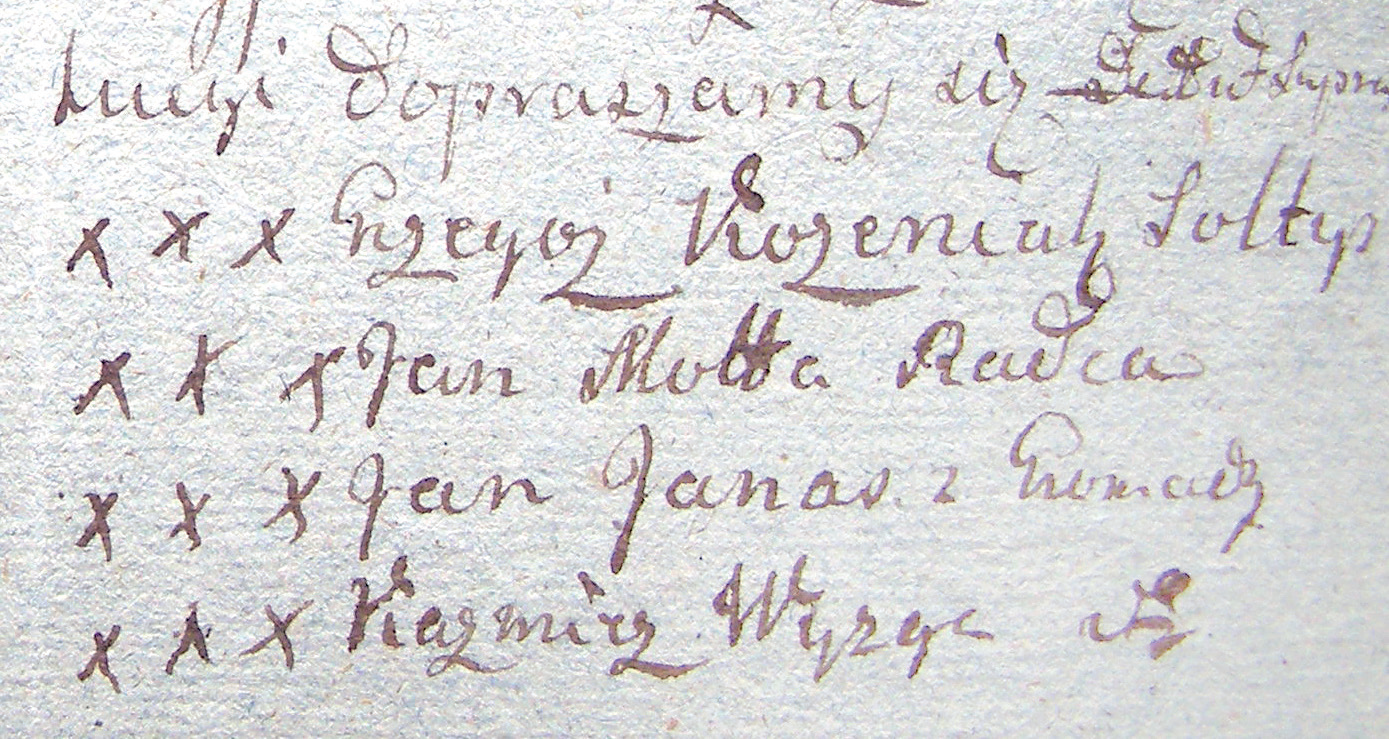 dopraszamy się
x x x Grzegoż Kozeniak Sołtys
x x x Jan Motta Radca
x x x Jan Janas z Gromady
x x x Kazmirz Wyzga